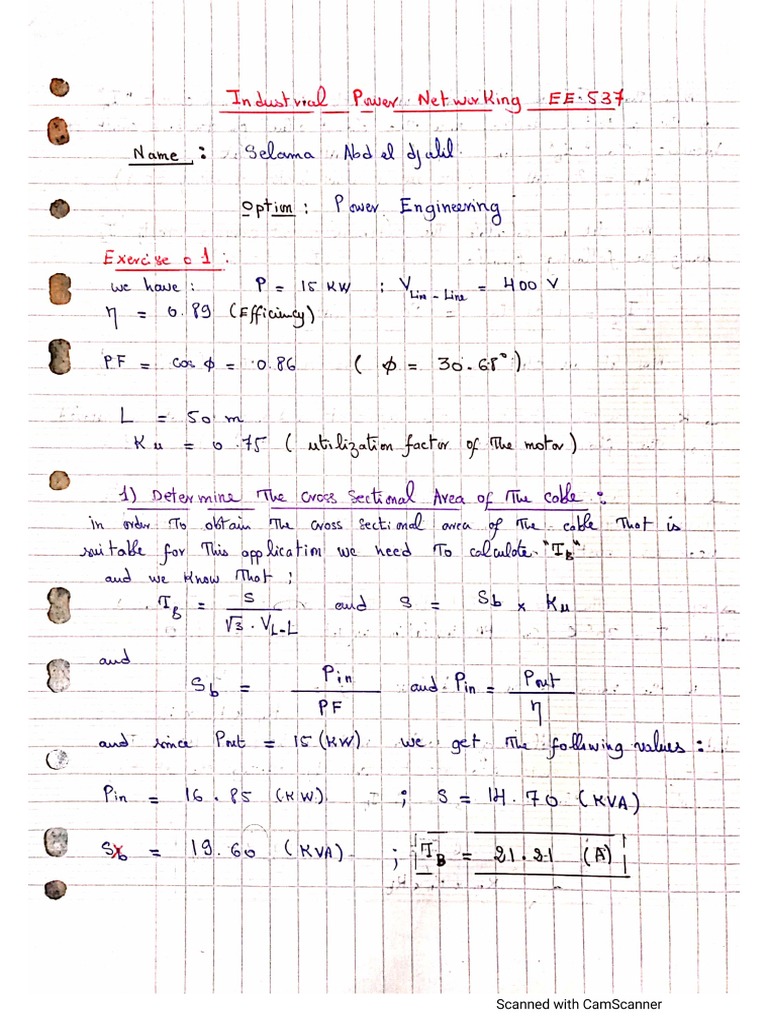 Industrial Power Networking EE.537
Name : Selama Abd el djalil
Option : Power Engineering
Exercise 01 :
we have : P = 15 KW ; V Line-Line = 400 V
η = 0.89 (Efficiency)
PF = cos φ = 0.86 ( φ = 30.68° )
L = 50 m
Ku = 0.75 ( utilization factor of The motor )
1) Determine The cross sectional Area of The cable :
in order To obtain The cross sectional area of The cable That is
suitable for This application we need To calculate "IB"
and we know That :
IB = S / √3 . VL-L and S = Sb × Ku
and
Sb = Pin / PF and Pin = Pout / η
and since Pout = 15 (KW) we get The following values :
Pin = 16.85 (KW). ; S = 14.70 (KVA)
Sb = 19.60 (KVA) ; IB = 21.21 (A)
Scanned with CamScanner